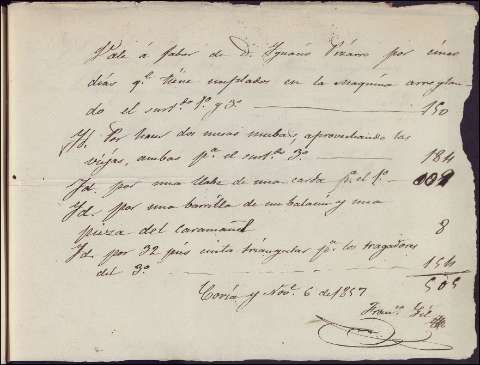 Vale á fabor de D. Ygnacio Pizarro por cinco
dias qe. tiene empleados en la Maquina arreglan-
do el surtdo. 1º. y 3º. 150
Yd. Por hacer dos mesas nuebas, aprovechando las
viejas, ambas pa. el surtdo. 3º. 184
Yd. por una llabe de una carda pa. el 1º. 009
Yd. por una barrilla de un balacin y una
pieza del 8
Yd. por 32 piés cinta triangular pa. los tragadores
del 3º. 154
505
Coria y Nove. 6 de 1857
Franco. Gil